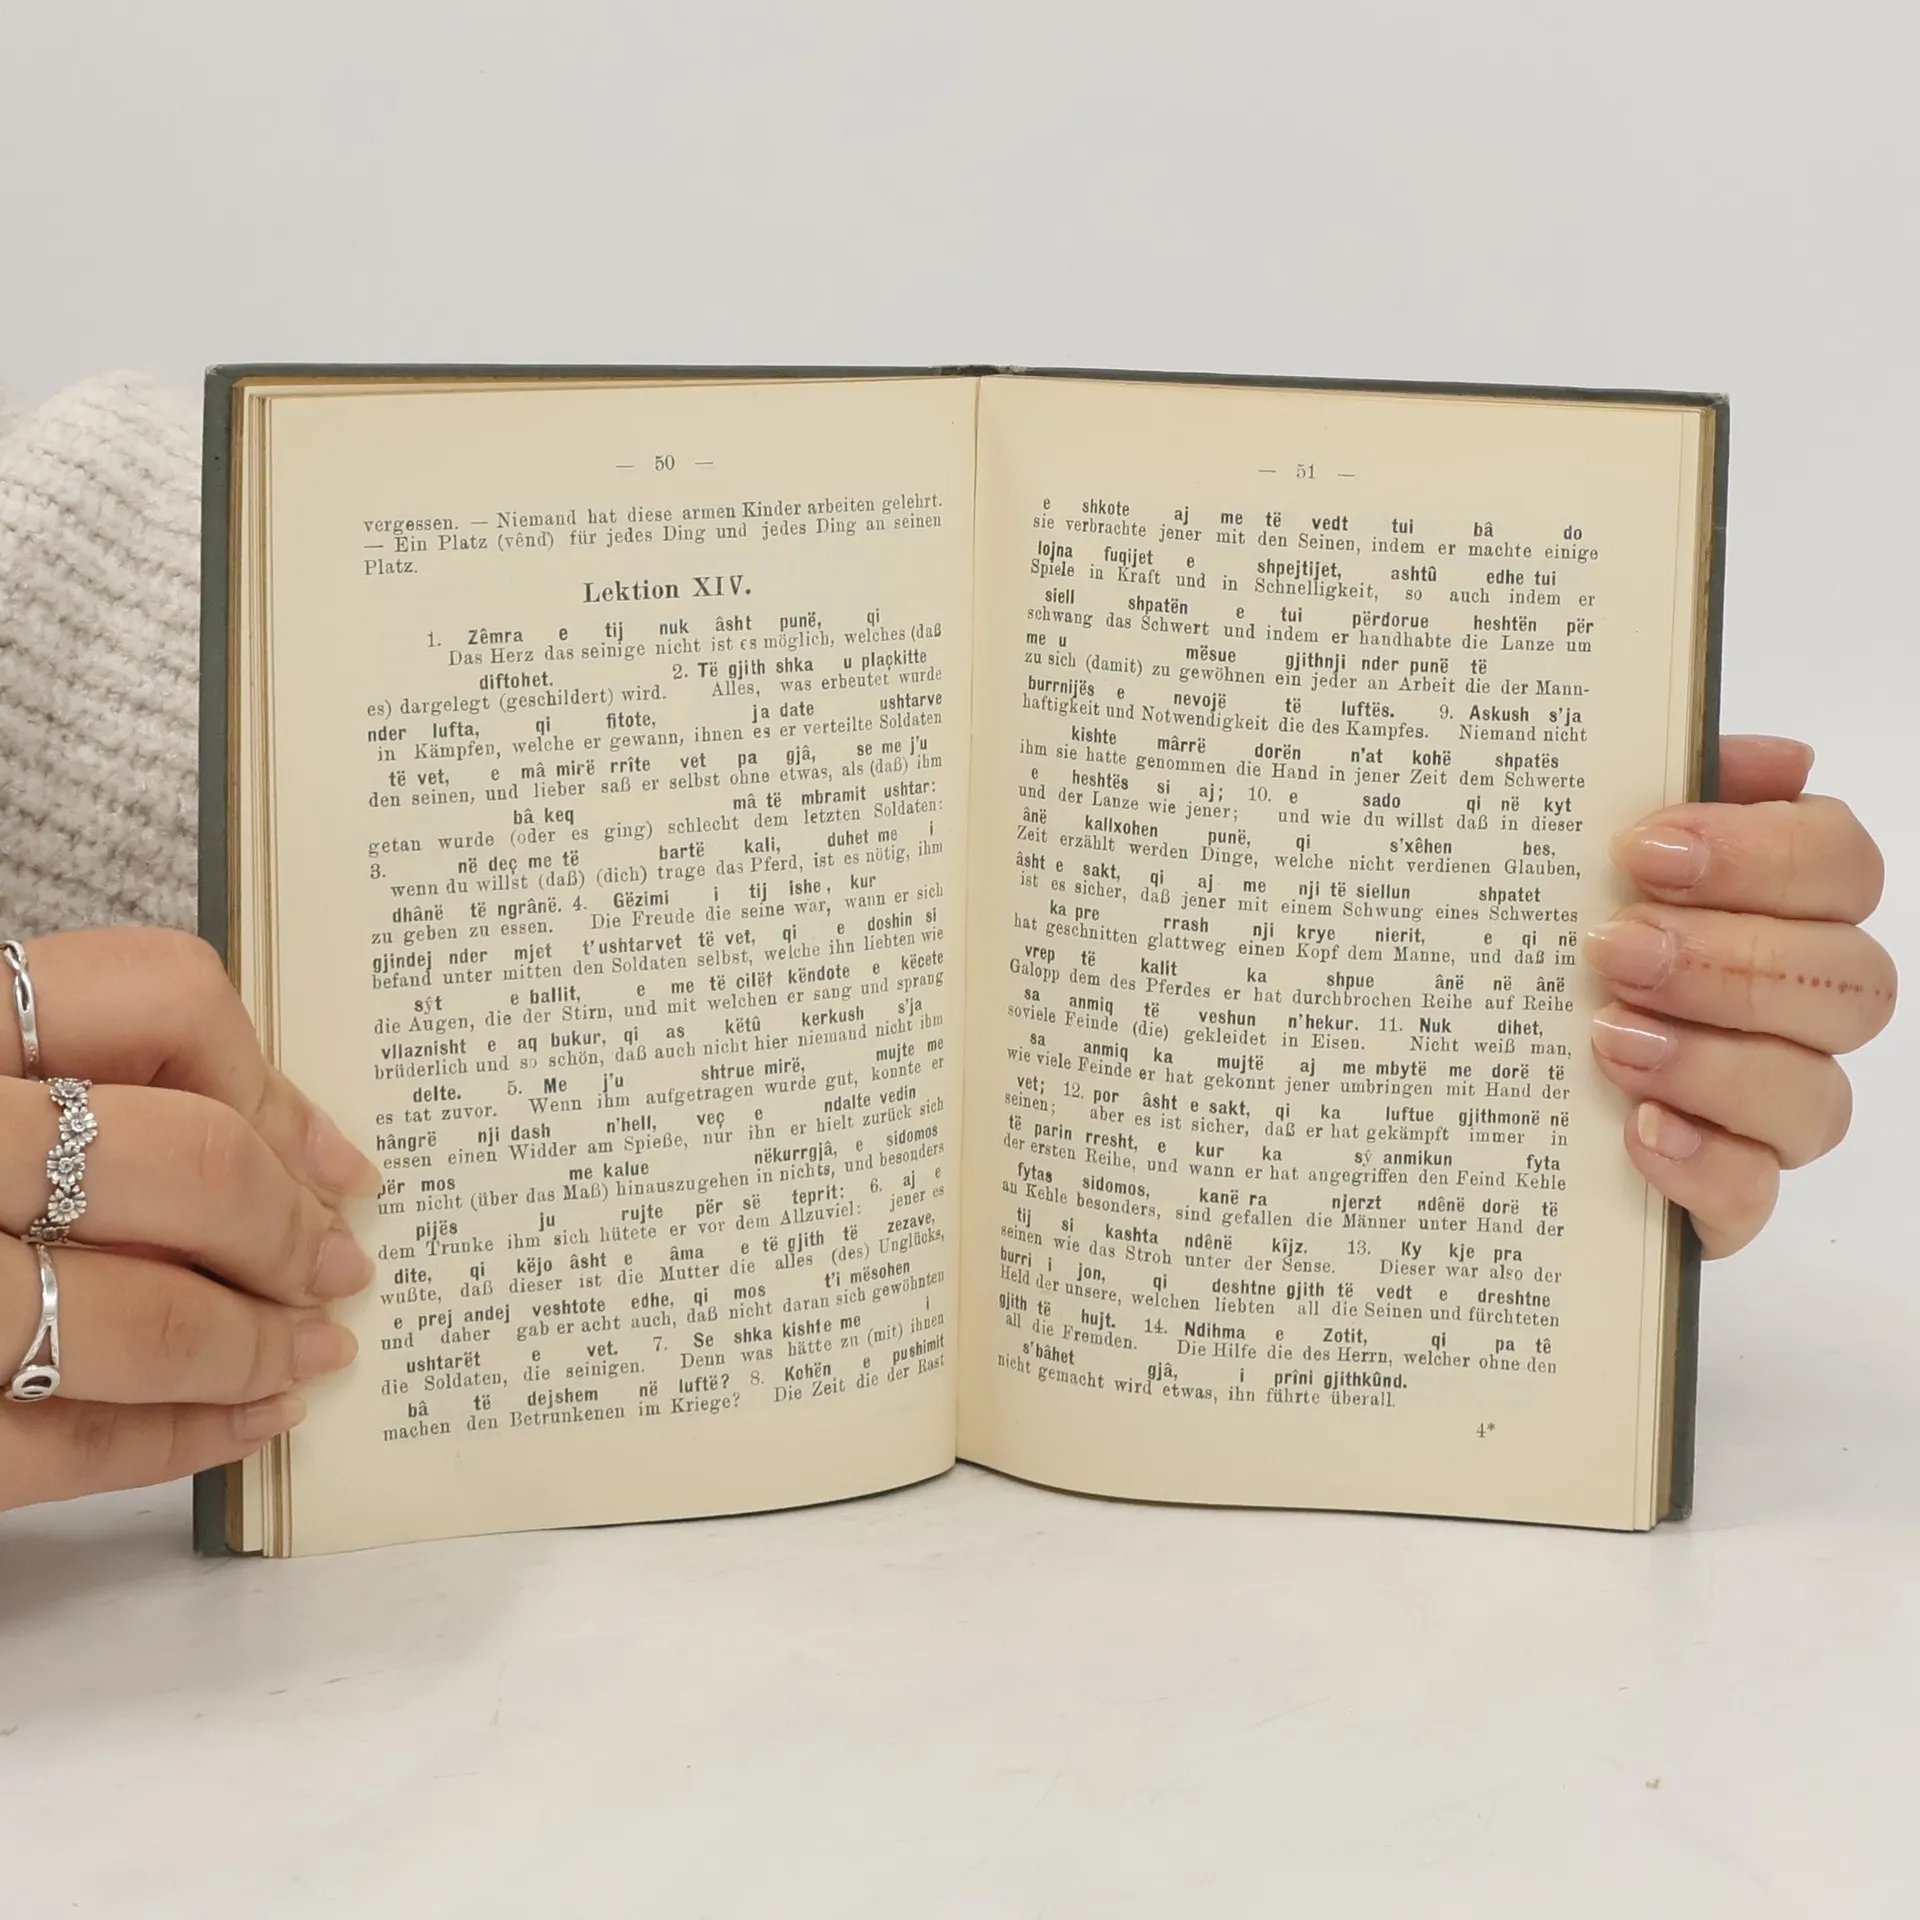 — 50 —
vergessen. — Niemand hat diese armen Kinder arbeiten gelehrt.
— Ein Platz (vênd) für jedes Ding und jedes Ding an seinen
Platz.
Lektion XIV.
1. Zêmra e tij nuk âsht punë, qi
Das Herz das seinige nicht ist es möglich, welches (daß
diftohet. 2. Të gjith shka u plaçkitte
es) dargelegt (geschildert) wird. Alles, was erbeutet wurde
nder lufta, qi fitote, ja date ushtarve
in Kämpfen, welche er gewann, ihnen es er verteilte Soldaten
të vet, e mâ mirë rrîte vet pa gjâ, se me j'u
den seinen, und lieber saß er selbst ohne etwas, als (daß) ihm
bâ keq mâ të mbramit ushtar:
getan wurde (oder es ging) schlecht dem letzten Soldaten:
3. në deç me të bartë kali, duhet me i
wenn du willst (daß) (dich) trage das Pferd, ist es nötig, ihm
dhânë të ngrânë. 4. Gëzimi i tij ishe, kur
zu geben zu essen. Die Freude die seine war, wann er sich
gjindej nder mjet t'ushtarvet të vet, qi e doshin si
befand unter mitten den Soldaten selbst, welche ihn liebten wie
sŷt e ballit, e me të cilët këndote e këcete
die Augen, die der Stirn, und mit welchen er sang und sprang
vllaznisht e aq bukur, qi as këtû kerkush s'ja
brüderlich und so schön, daß auch nicht hier niemand nicht ihm
delte. 5. Me j'u shtrue mirë, mujte me
es tat zuvor. Wenn ihm aufgetragen wurde gut, konnte er
hângrë nji dash n'hell, veç e ndalte vedin
essen einen Widder am Spieße, nur ihn er hielt zurück sich
për mos me kalue nëkurrgjâ, e sidomos
um nicht (über das Maß) hinauszugehen in nichts, und besonders
pijës ju rujte për së teprit: 6. aj e
dem Trunke ihm sich hütete er vor dem Allzuviel: jener es
dite, qi këjo âsht e âma e të gjith të zezave,
wußte, daß dieser ist die Mutter die alles (des) Unglücks,
e prej andej veshtote edhe, qi mos t'i mësohen
und daher gab er acht auch, daß nicht daran sich gewöhnten
ushtarët e vet. 7. Se shka kishte me i
die Soldaten, die seinigen. Denn was hätte zu (mit) ihnen
bâ të dejshem në luftë? 8. Kohën e pushimit
machen den Betrunkenen im Kriege? Die Zeit die der Rast
— 51 —
e shkote aj me të vedt tui bâ do
sie verbrachte jener mit den Seinen, indem er machte einige
lojna fuqijet e shpejtijet, ashtû edhe tui
Spiele in Kraft und in Schnelligkeit, so auch indem er
siell shpatën e tui përdorue heshtën për
schwang das Schwert und indem er handhabte die Lanze um
me u mësue gjithnji nder punë të
zu sich (damit) zu gewöhnen ein jeder an Arbeit die der Mann-
burrnijës e nevojë të luftës. 9. Askush s'ja
haftigkeit und Notwendigkeit die des Kampfes. Niemand nicht
kishte mârrë dorën n'at kohë shpatës
ihm sie hatte genommen die Hand in jener Zeit dem Schwerte
e heshtës si aj; 10. e sado qi në kyt
und der Lanze wie jener; und wie du willst daß in dieser
ânë kallxohen punë, qi s'xêhen bes,
Zeit erzählt werden Dinge, welche nicht verdienen Glauben,
âsht e sakt, qi aj me nji të siellun shpatet
ist es sicher, daß jener mit einem Schwung eines Schwertes
ka pre rrash nji krye nierit, e qi në
hat geschnitten glattweg einen Kopf dem Manne, und daß im
vrep të kalit ka shpue ânë në ânë
Galopp dem des Pferdes er hat durchbrochen Reihe auf Reihe
sa anmiq të veshun n'hekur. 11. Nuk dihet,
soviele Feinde (die) gekleidet in Eisen. Nicht weiß man,
sa anmiq ka mujtë aj me mbytë me dorë të
wie viele Feinde er hat gekonnt jener umbringen mit Hand der
vet; 12. por âsht e sakt, qi ka luftue gjithmonë në
seinen; aber es ist sicher, daß er hat gekämpft immer in
të parin rresht, e kur ka sŷ anmikun fyta
der ersten Reihe, und wann er hat angegriffen den Feind Kehle
fytas sidomos, kanë ra njerzt ndênë dorë të
an Kehle besonders, sind gefallen die Männer unter Hand der
tij si kashta ndênë kîjz. 13. Ky kje pra
seinen wie das Stroh unter der Sense. Dieser war also der
burri i jon, qi deshtne gjith të vedt e dreshtne
Held der unsere, welchen liebten all die Seinen und fürchteten
gjith të hujt. 14. Ndihma e Zotit, qi pa tê
all die Fremden. Die Hilfe die des Herrn, welcher ohne den
s'bâhet gjâ, i prîni gjithkûnd.
nicht gemacht wird etwas, ihn führte überall.
4*